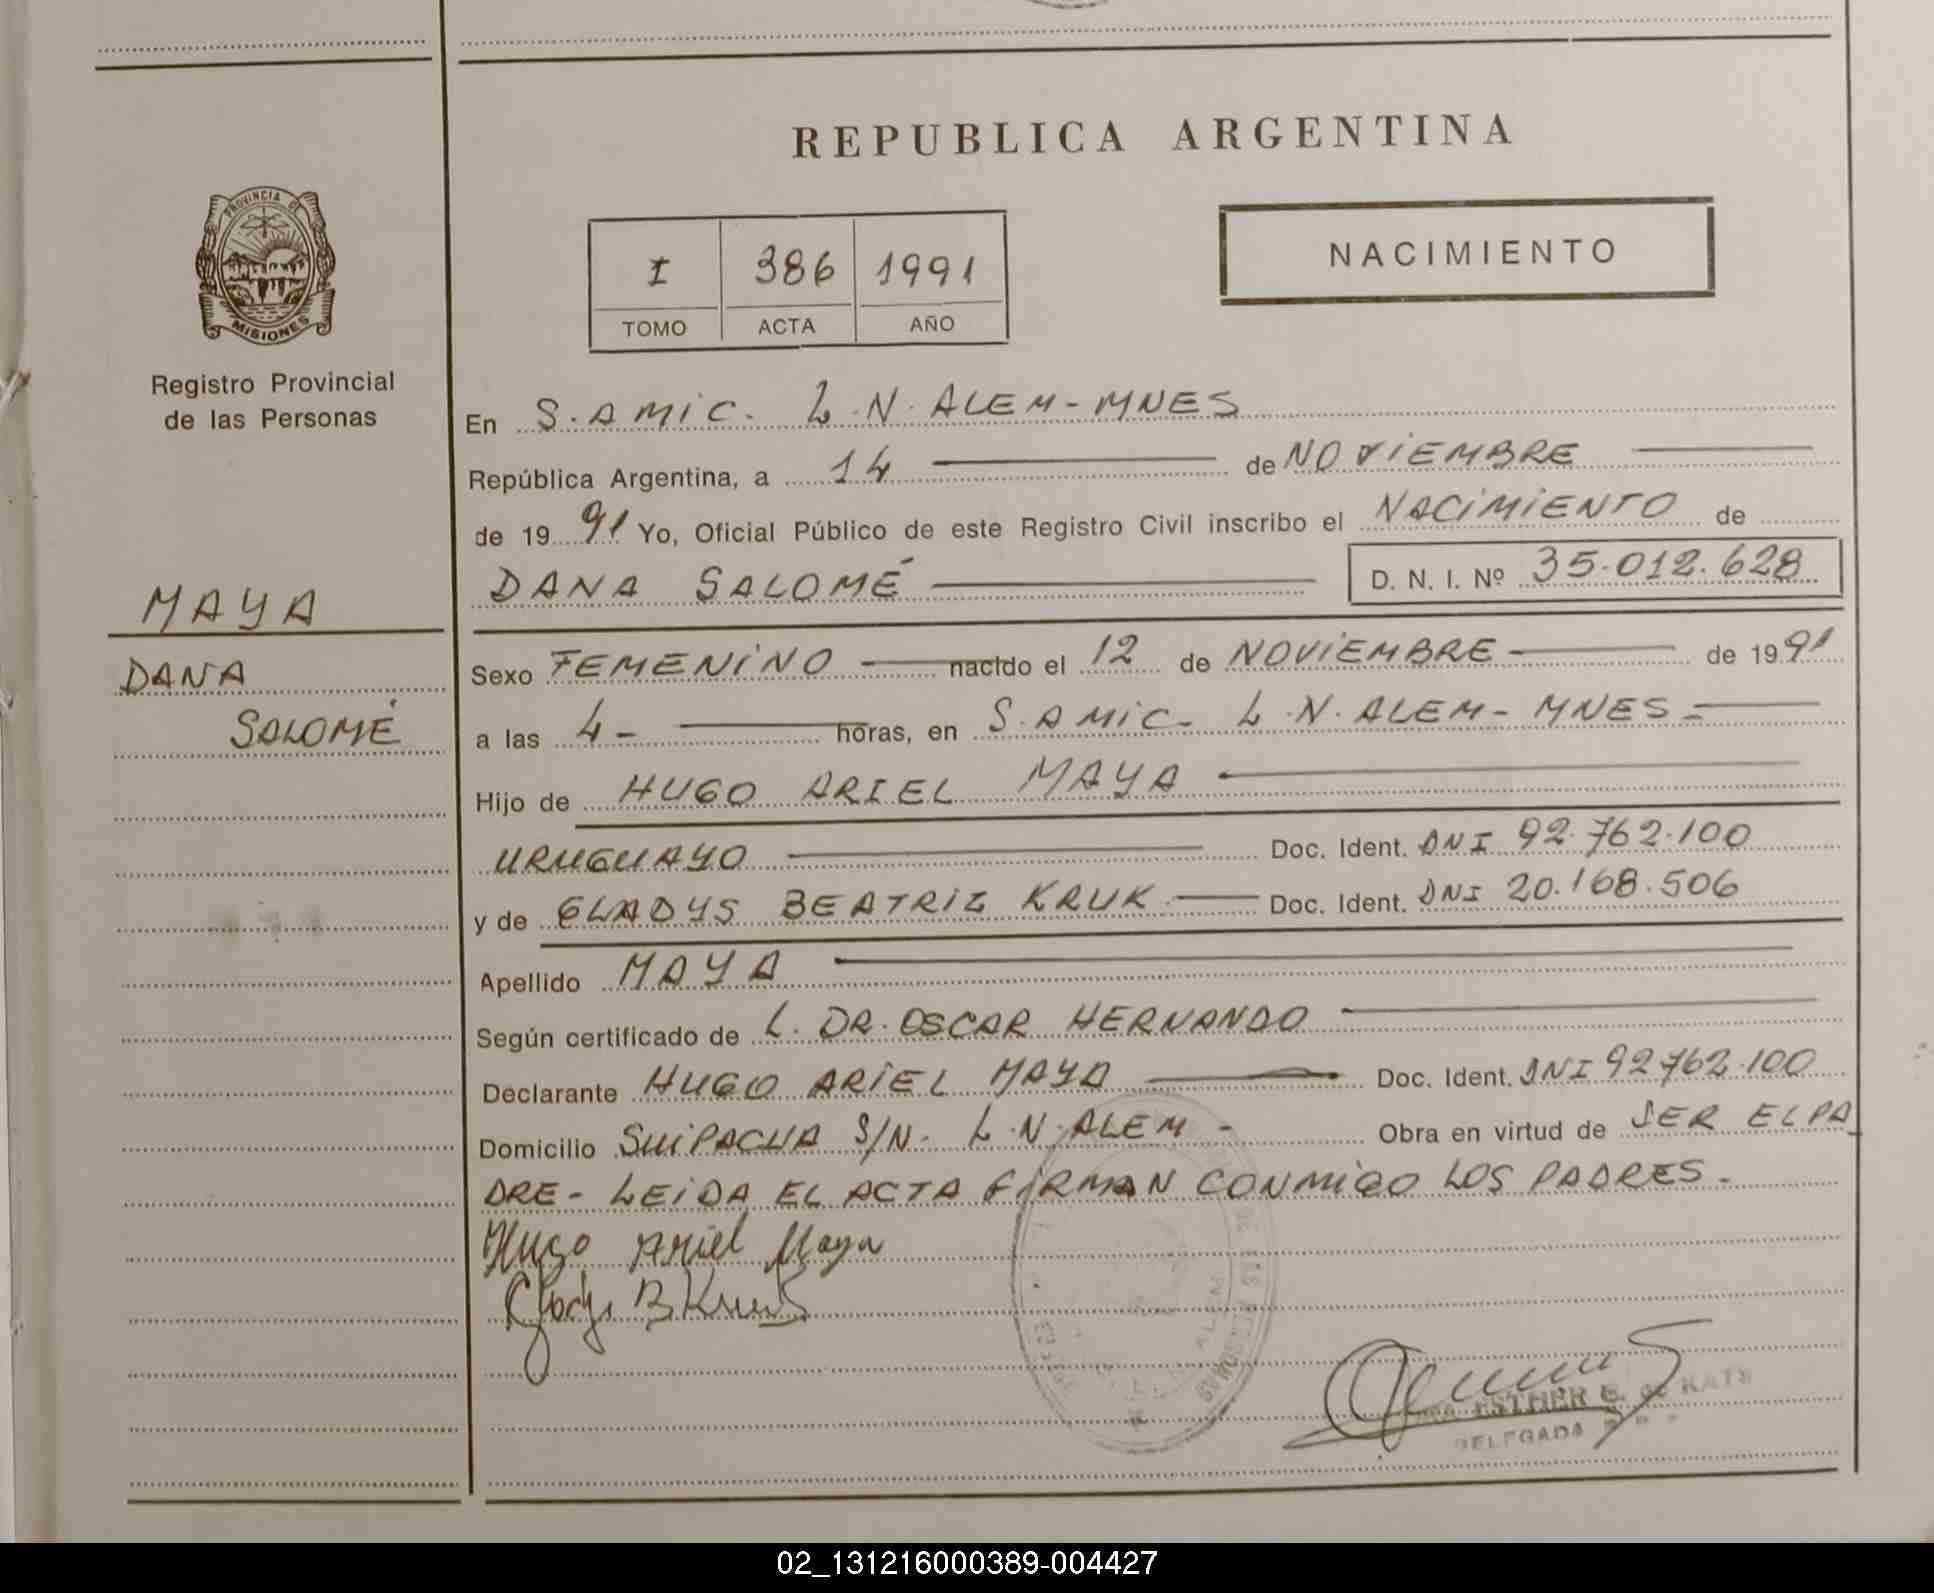 REPUBLICA ARGENTINA
PROVINCIA DE
MISIONES
Registro Provincial
de las Personas
MAYA
DANA
SALOMÉ
I 386 1991
TOMO ACTA AÑO
NACIMIENTO
En S. AMIC. L.N. ALEM - MNES
República Argentina, a 14 de NOVIEMBRE
de 1991 Yo, Oficial Público de este Registro Civil inscribo el NACIMIENTO de
DANA SALOMÉ D. N. I. Nº 35.012.628
Sexo FEMENINO nacido el 12 de NOVIEMBRE de 1991
a las 4 - horas, en S. AMIC - L.N. ALEM - MNES -
Hijo de HUGO ARIEL MAYA
URUGUAYO Doc. Ident. DNI 92.762.100
y de GLADYS BEATRIZ KRUK Doc. Ident. DNI 20.168.506
Apellido MAYA
Según certificado de L. DR. OSCAR HERNANDO
Declarante HUGO ARIEL MAYA Doc. Ident. DNI 92762.100
Domicilio SUIPACHA S/N - L.N. ALEM - Obra en virtud de SER EL PA_
DRE - LEIDA EL ACTA FIRMAN CONMIGO LOS PADRES -
Hugo Ariel Maya
Gladys B Kruk
DE LAS PERSONAS
ALEM
ESTHER E. de KATS
DELEGADA
02_131216000389-004427